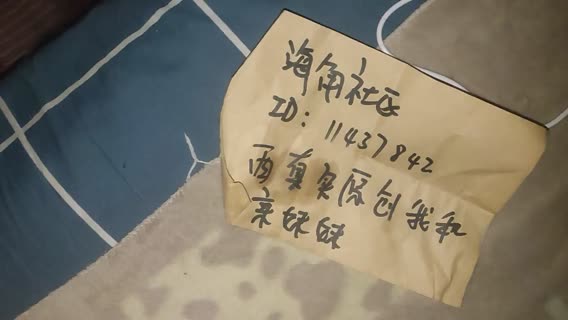 海角社区
ID: 11437842
百真实原创我和
亲妹妹